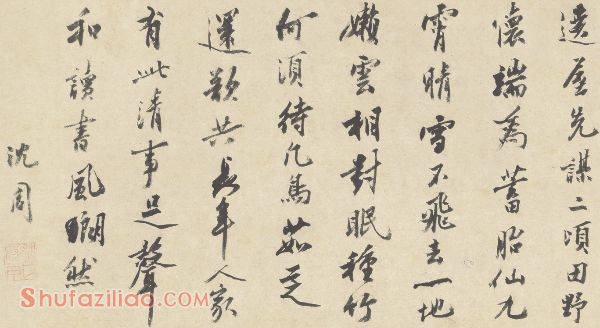 遶屋先謀二頃田野
懷端為蓄胎仙九
霄晴雪不飛去一地
嬾雲相對眠種竹
何須待凡鳥茹芝
還共長年人家
有此清事足聲
和讀書風瑯然
沈周
Shufaziliao.COM